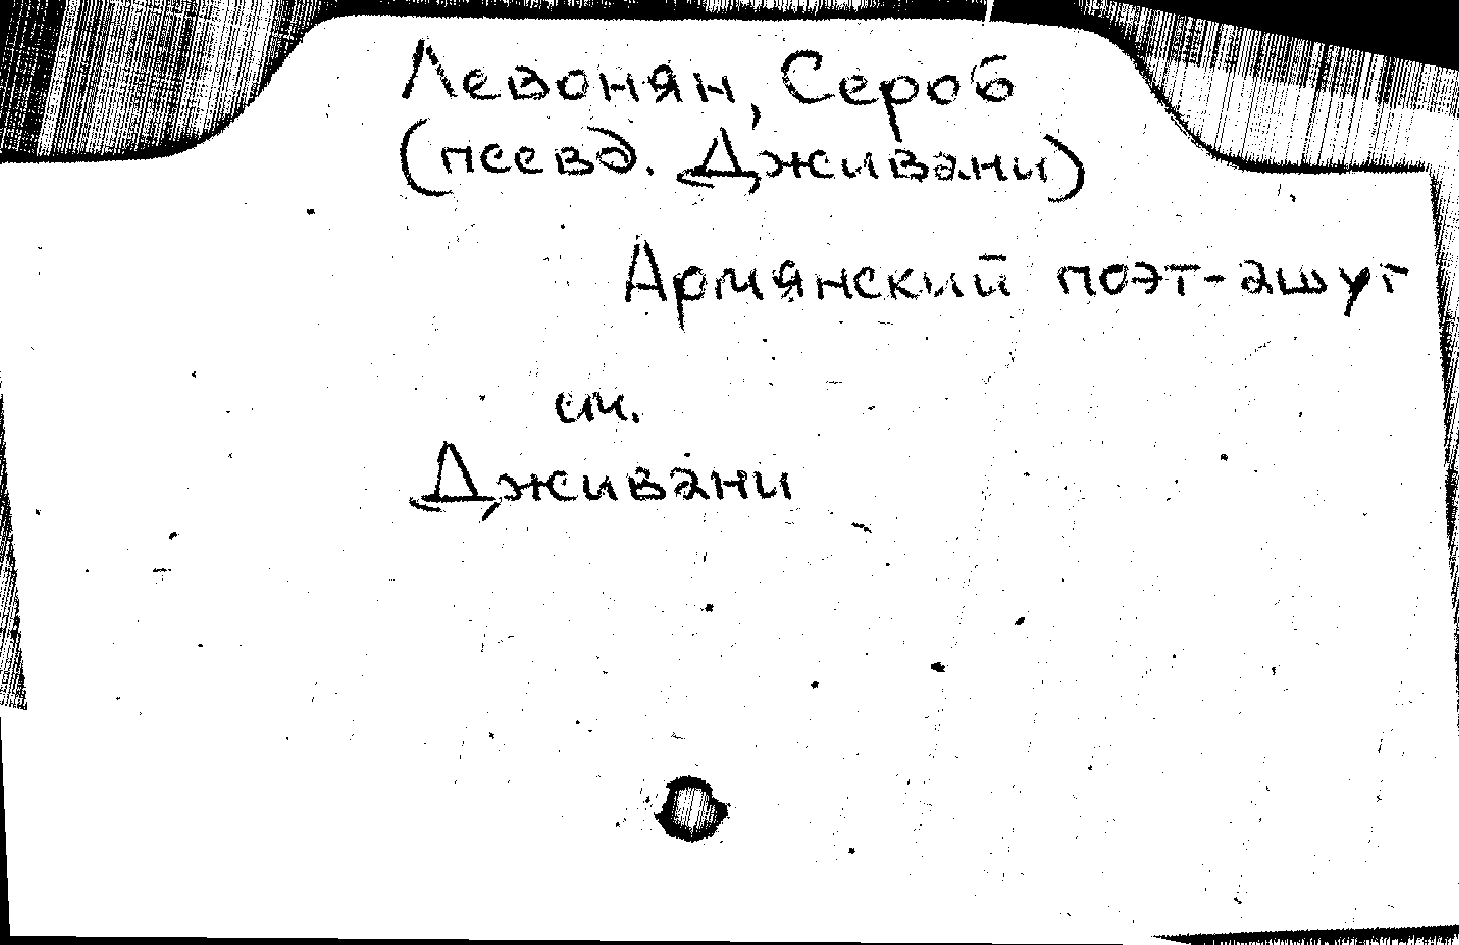 Левонян, Сероб
(псевд. Дживани)
Армянский поэт-ашуг
см.
Дживани